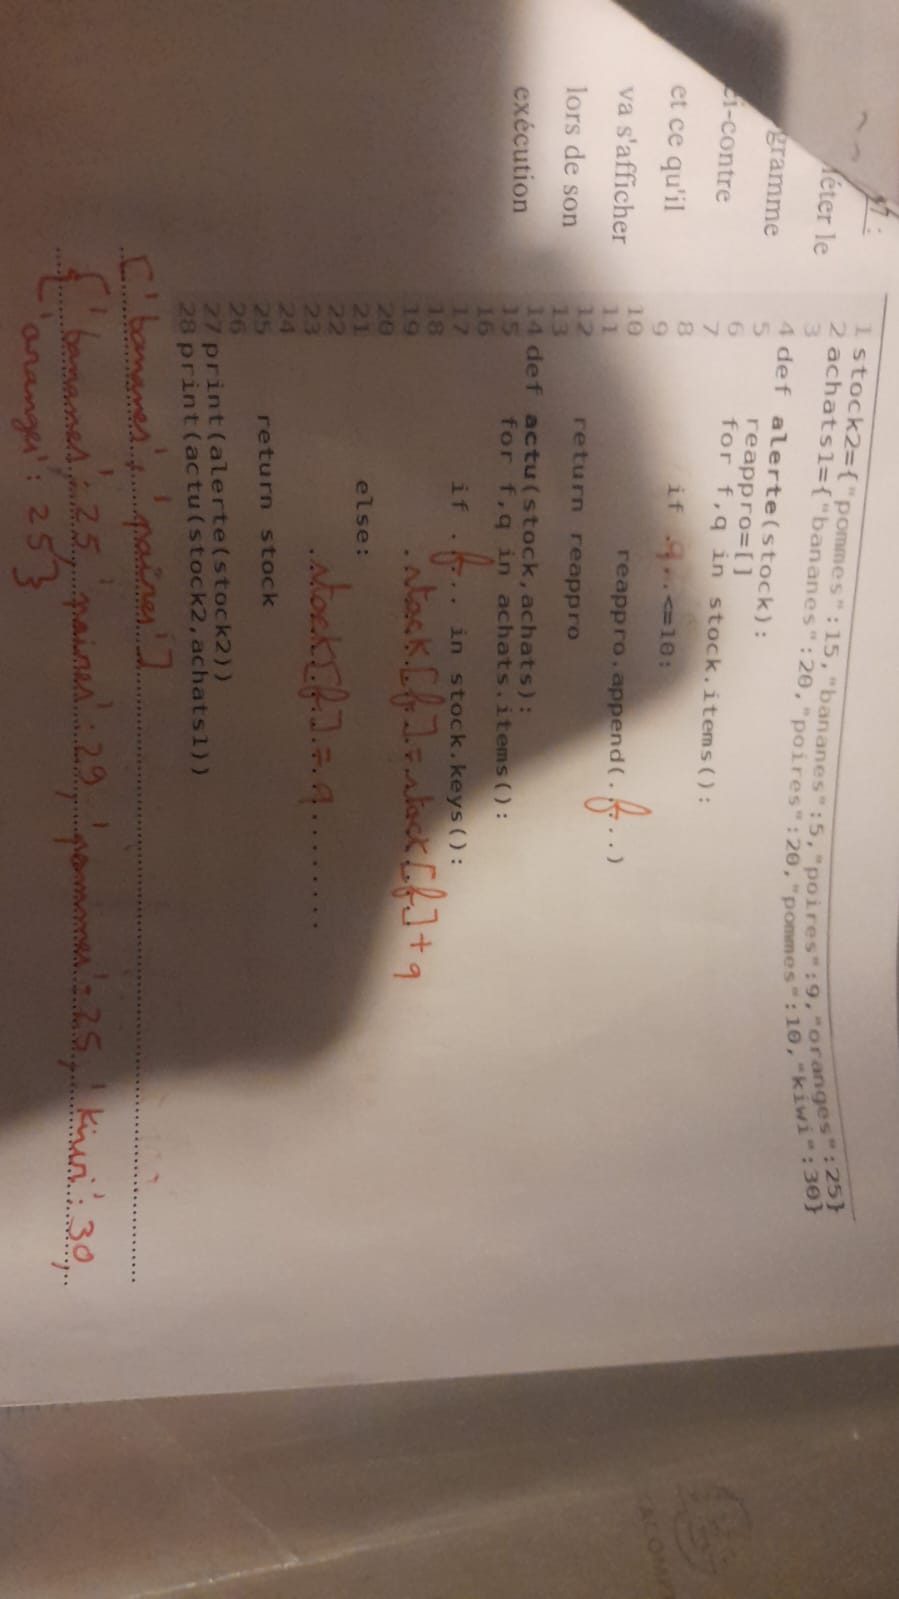 7 :
léter le
gramme
ci-contre
et ce qu'il
va s'afficher
lors de son
exécution
1 stock2={"pommes":15,"bananes":5,"poires":9,"oranges":25}
2 achats1={"bananes":20,"poires":20,"pommes":10,"kiwi":30}
3
4 def alerte(stock):
5 reappro=[]
6 for f,q in stock.items():
7
8 if .q..<=10:
9
10 reappro.append(..f...)
11
12 return reappro
13
14 def actu(stock,achats):
15 for f,q in achats.items():
16
17 if .f... in stock.keys():
18
19 stock[f]=stock[f]+q
20
21 else:
22
23 stock[f]=q........
24
25 return stock
26
27 print(alerte(stock2))
28 print(actu(stock2,achats1))
['bananes', 'poires']
{'bananes': 25, 'poires': 29, 'pommes': 25, 'kiwi': 30,
'oranges': 25}